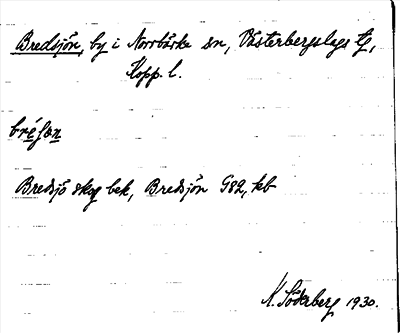 Bredsjön, by i Norrbärke sn, Västerbergslags tg,
Kopp. l.
Bredsjö skog bek, Bredsjön G82, kb
K. Söderberg 1930.